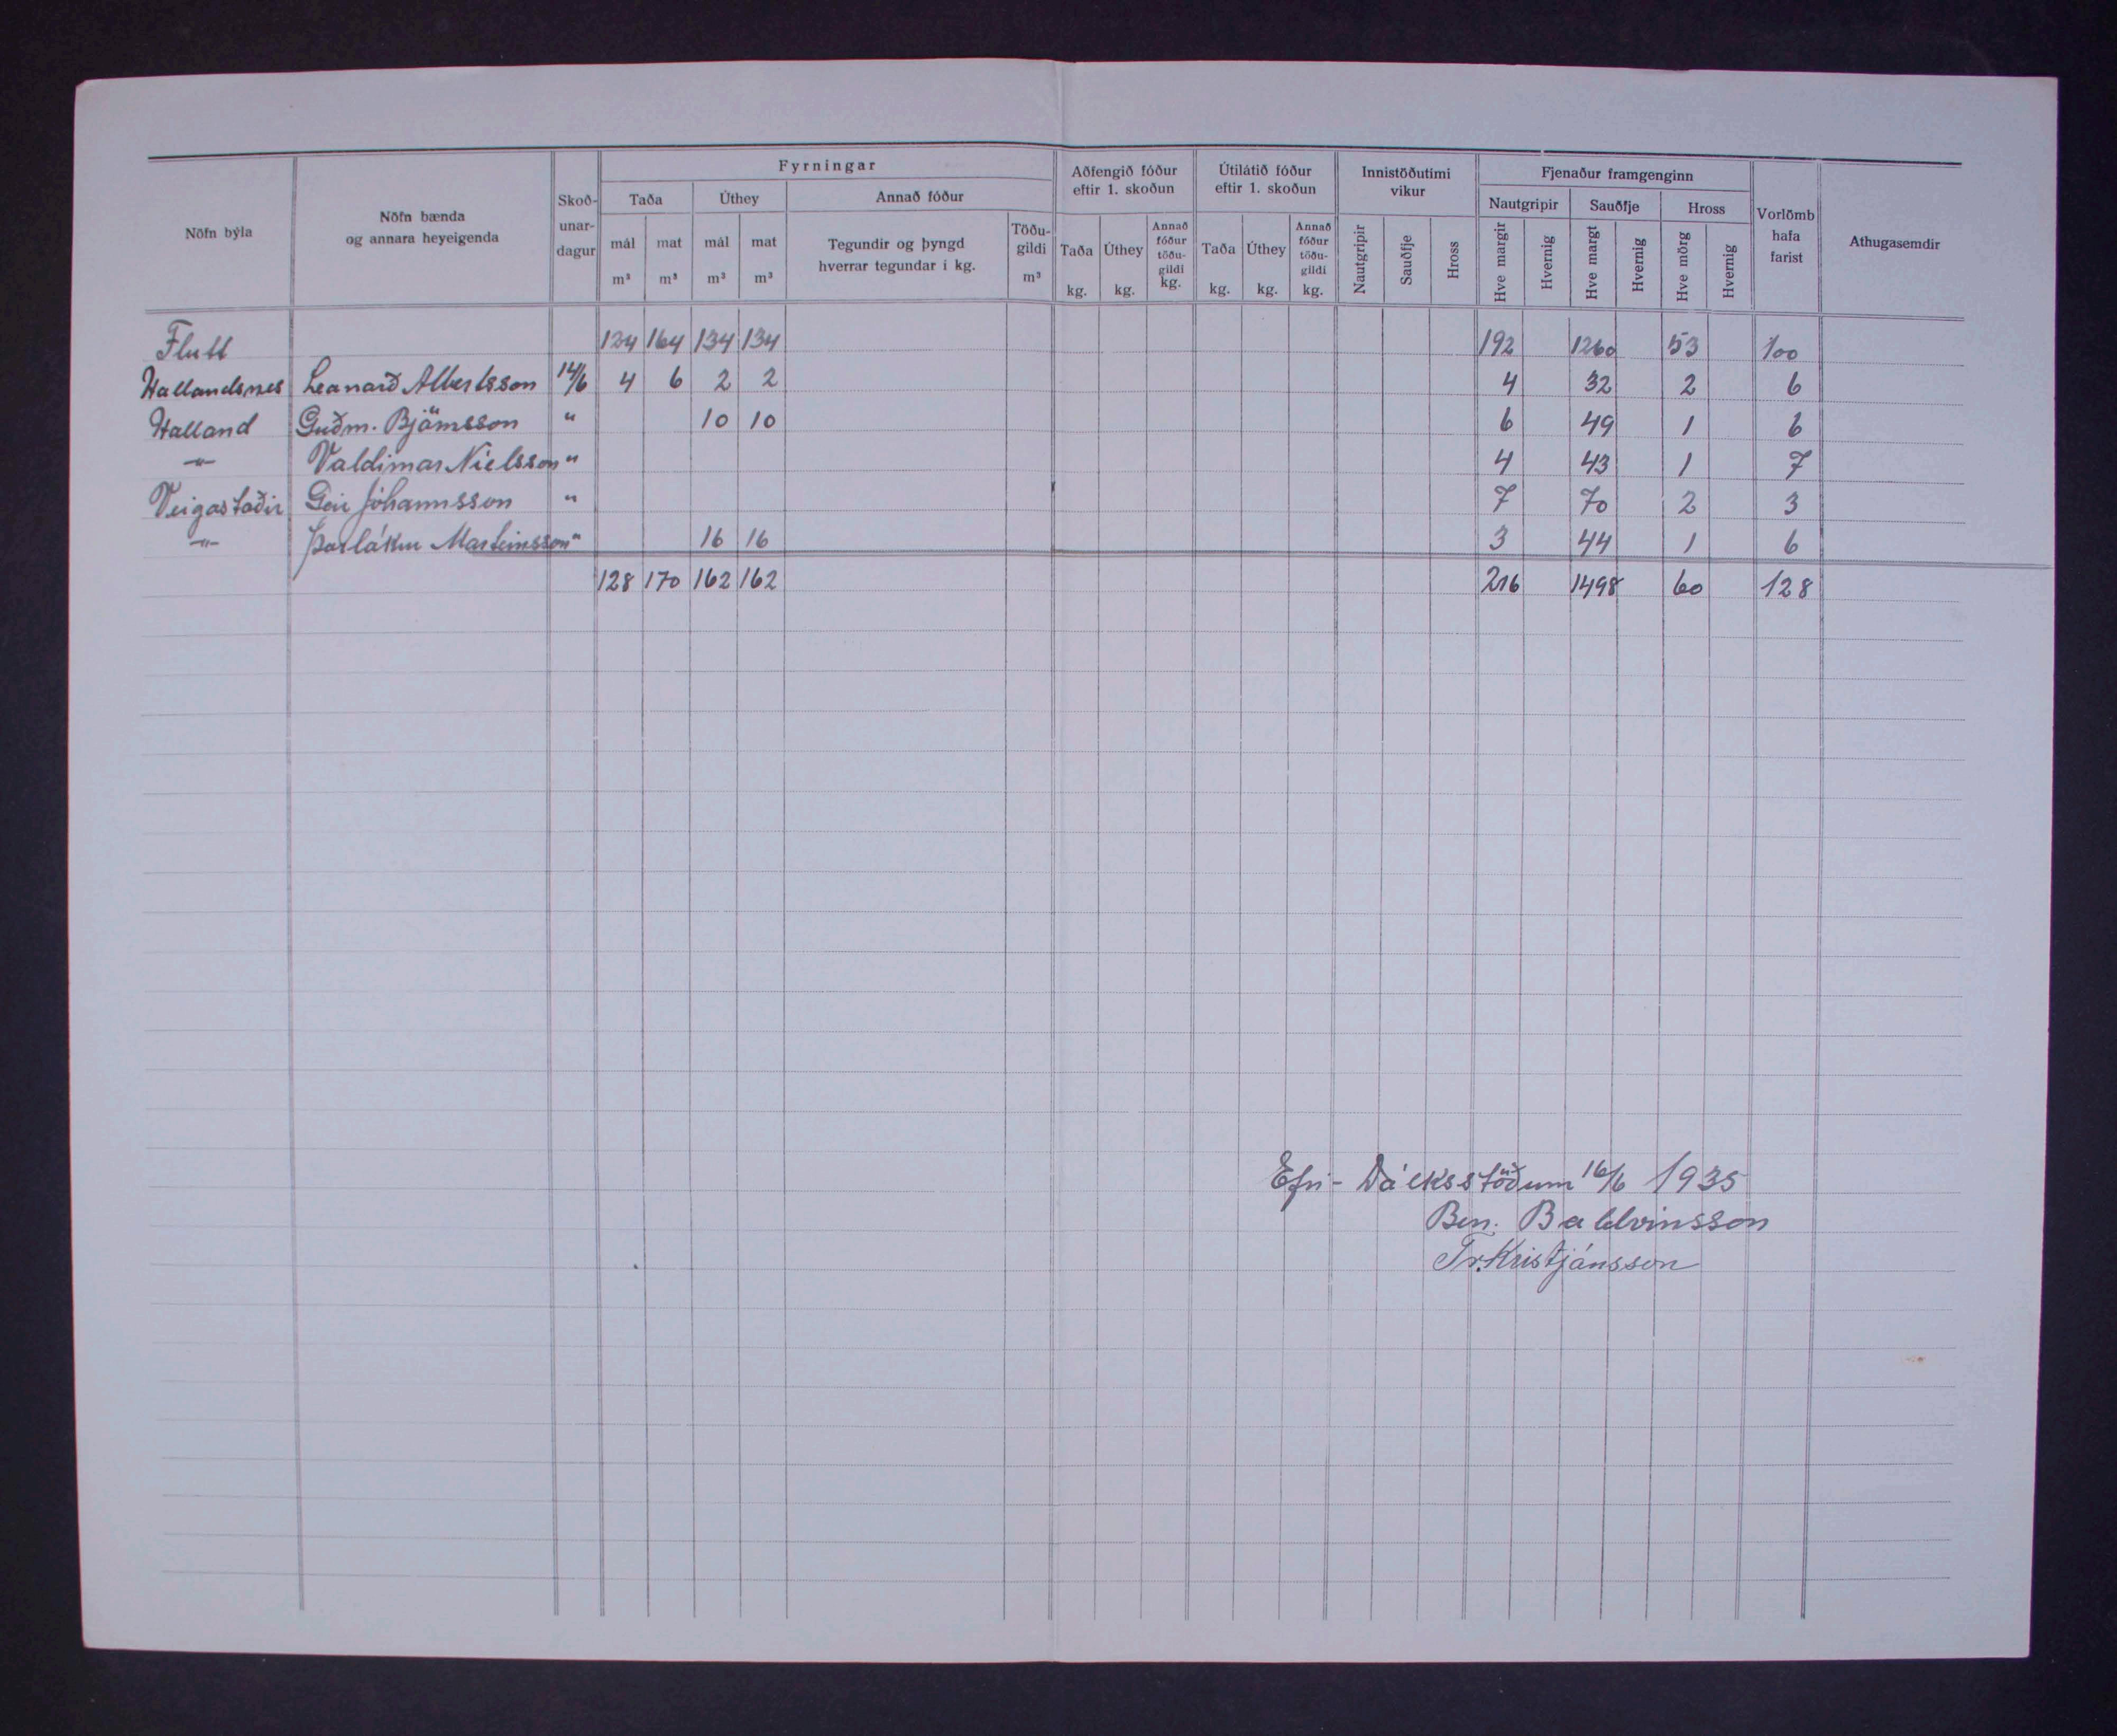 Nöfn býla | Nöfn bænda og annara heyeigenda | Skoð-unar-dagur | Fyrningar | Aðfengið fóður eftir 1. skoðun | Útilátið fóður eftir 1. skoðun | Innistöðutimi vikur | Fjenaður framgenginn | Vorlömb hafa farist | Athugasemdir
Taða | Úthey | Annað fóður | Nautgripir | Sauðfje | Hross
mál m³ | mat m³ | mál m³ | mat m³ | Tegundir og þyngd hverrar tegundar í kg. | Töðu-gildi m³ | Taða kg. | Úthey kg. | Annað fóður töðu-gildi kg. | Taða kg. | Úthey kg. | Annað fóður töðu-gildi kg. | Nautgripir | Sauðfje | Hross | Hve margir | Hvernig | Hve margt | Hvernig | Hve mörg | Hvernig
Flutt 124 164 134 134 192 1260 53 100
Hallandsnes Leanarð Albertsson 14/6 4 6 2 2 4 32 2 6
Halland Guðm. Björnsson " 10 10 6 49 1 6
—"— Valdimar Níelsson " 4 43 1 7
Veigastaðir Geir Jóhannsson " 7 70 2 3
—"— Þorlákur Marteinsson " 16 16 3 44 1 6
128 170 162 162 216 1498 60 128
Efri-Dálksstöðum 16/6 1935
Ben. Baldvinsson
Tr. Kristjánsson